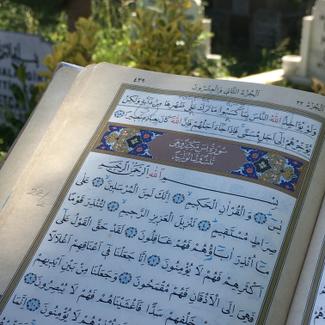 ٤٣٩
اَلْجُزْءُ الثَّانِي وَالْعِشْرُونَ
وَلَوْ يُؤَاخِذُ اللّٰهُ النَّاسَ بِمَا كَسَبُوا مَا تَرَكَ عَلٰى ظَهْرِهَا مِنْ دَابَّةٍ وَلٰكِنْ
يُؤَخِّرُهُمْ اِلٰٓى اَجَلٍ مُسَمًّى فَاِذَا جَٓاءَ اَجَلُهُمْ فَاِنَّ اللّٰهَ كَانَ بِعِبَادِهِ بَصِيرًا
سُورَةُ يٰسٓ مَكِّيَّةٌ وَهِيَ
بِسْمِ اللّٰهِ الرَّحْمٰنِ الرَّحِيمِ
يٰسٓ وَالْقُرْاٰنِ الْحَكِيمِ اِنَّكَ لَمِنَ الْمُرْسَلِينَ عَلٰى
صِرَاطٍ مُسْتَقِيمٍ تَنْزِيلَ الْعَزِيزِ الرَّحِيمِ لِتُنْذِرَ قَوْمًا
مَٓا اُنْذِرَ اٰبَٓاؤُهُمْ فَهُمْ غَافِلُونَ لَقَدْ حَقَّ الْقَوْلُ عَلٰٓى
اَكْثَرِهِمْ فَهُمْ لَا يُؤْمِنُونَ اِنَّا جَعَلْنَا فِٓي اَعْنَاقِهِمْ اَغْلَالًا
فَهِيَ اِلَى الْاَذْقَانِ فَهُمْ مُقْمَحُونَ وَجَعَلْنَا مِنْ بَيْنِ اَيْدِيهِمْ
خَلْفِهِمْ سَدًّا فَاَغْشَيْنَاهُمْ فَهُمْ لَا يُبْصِرُونَ